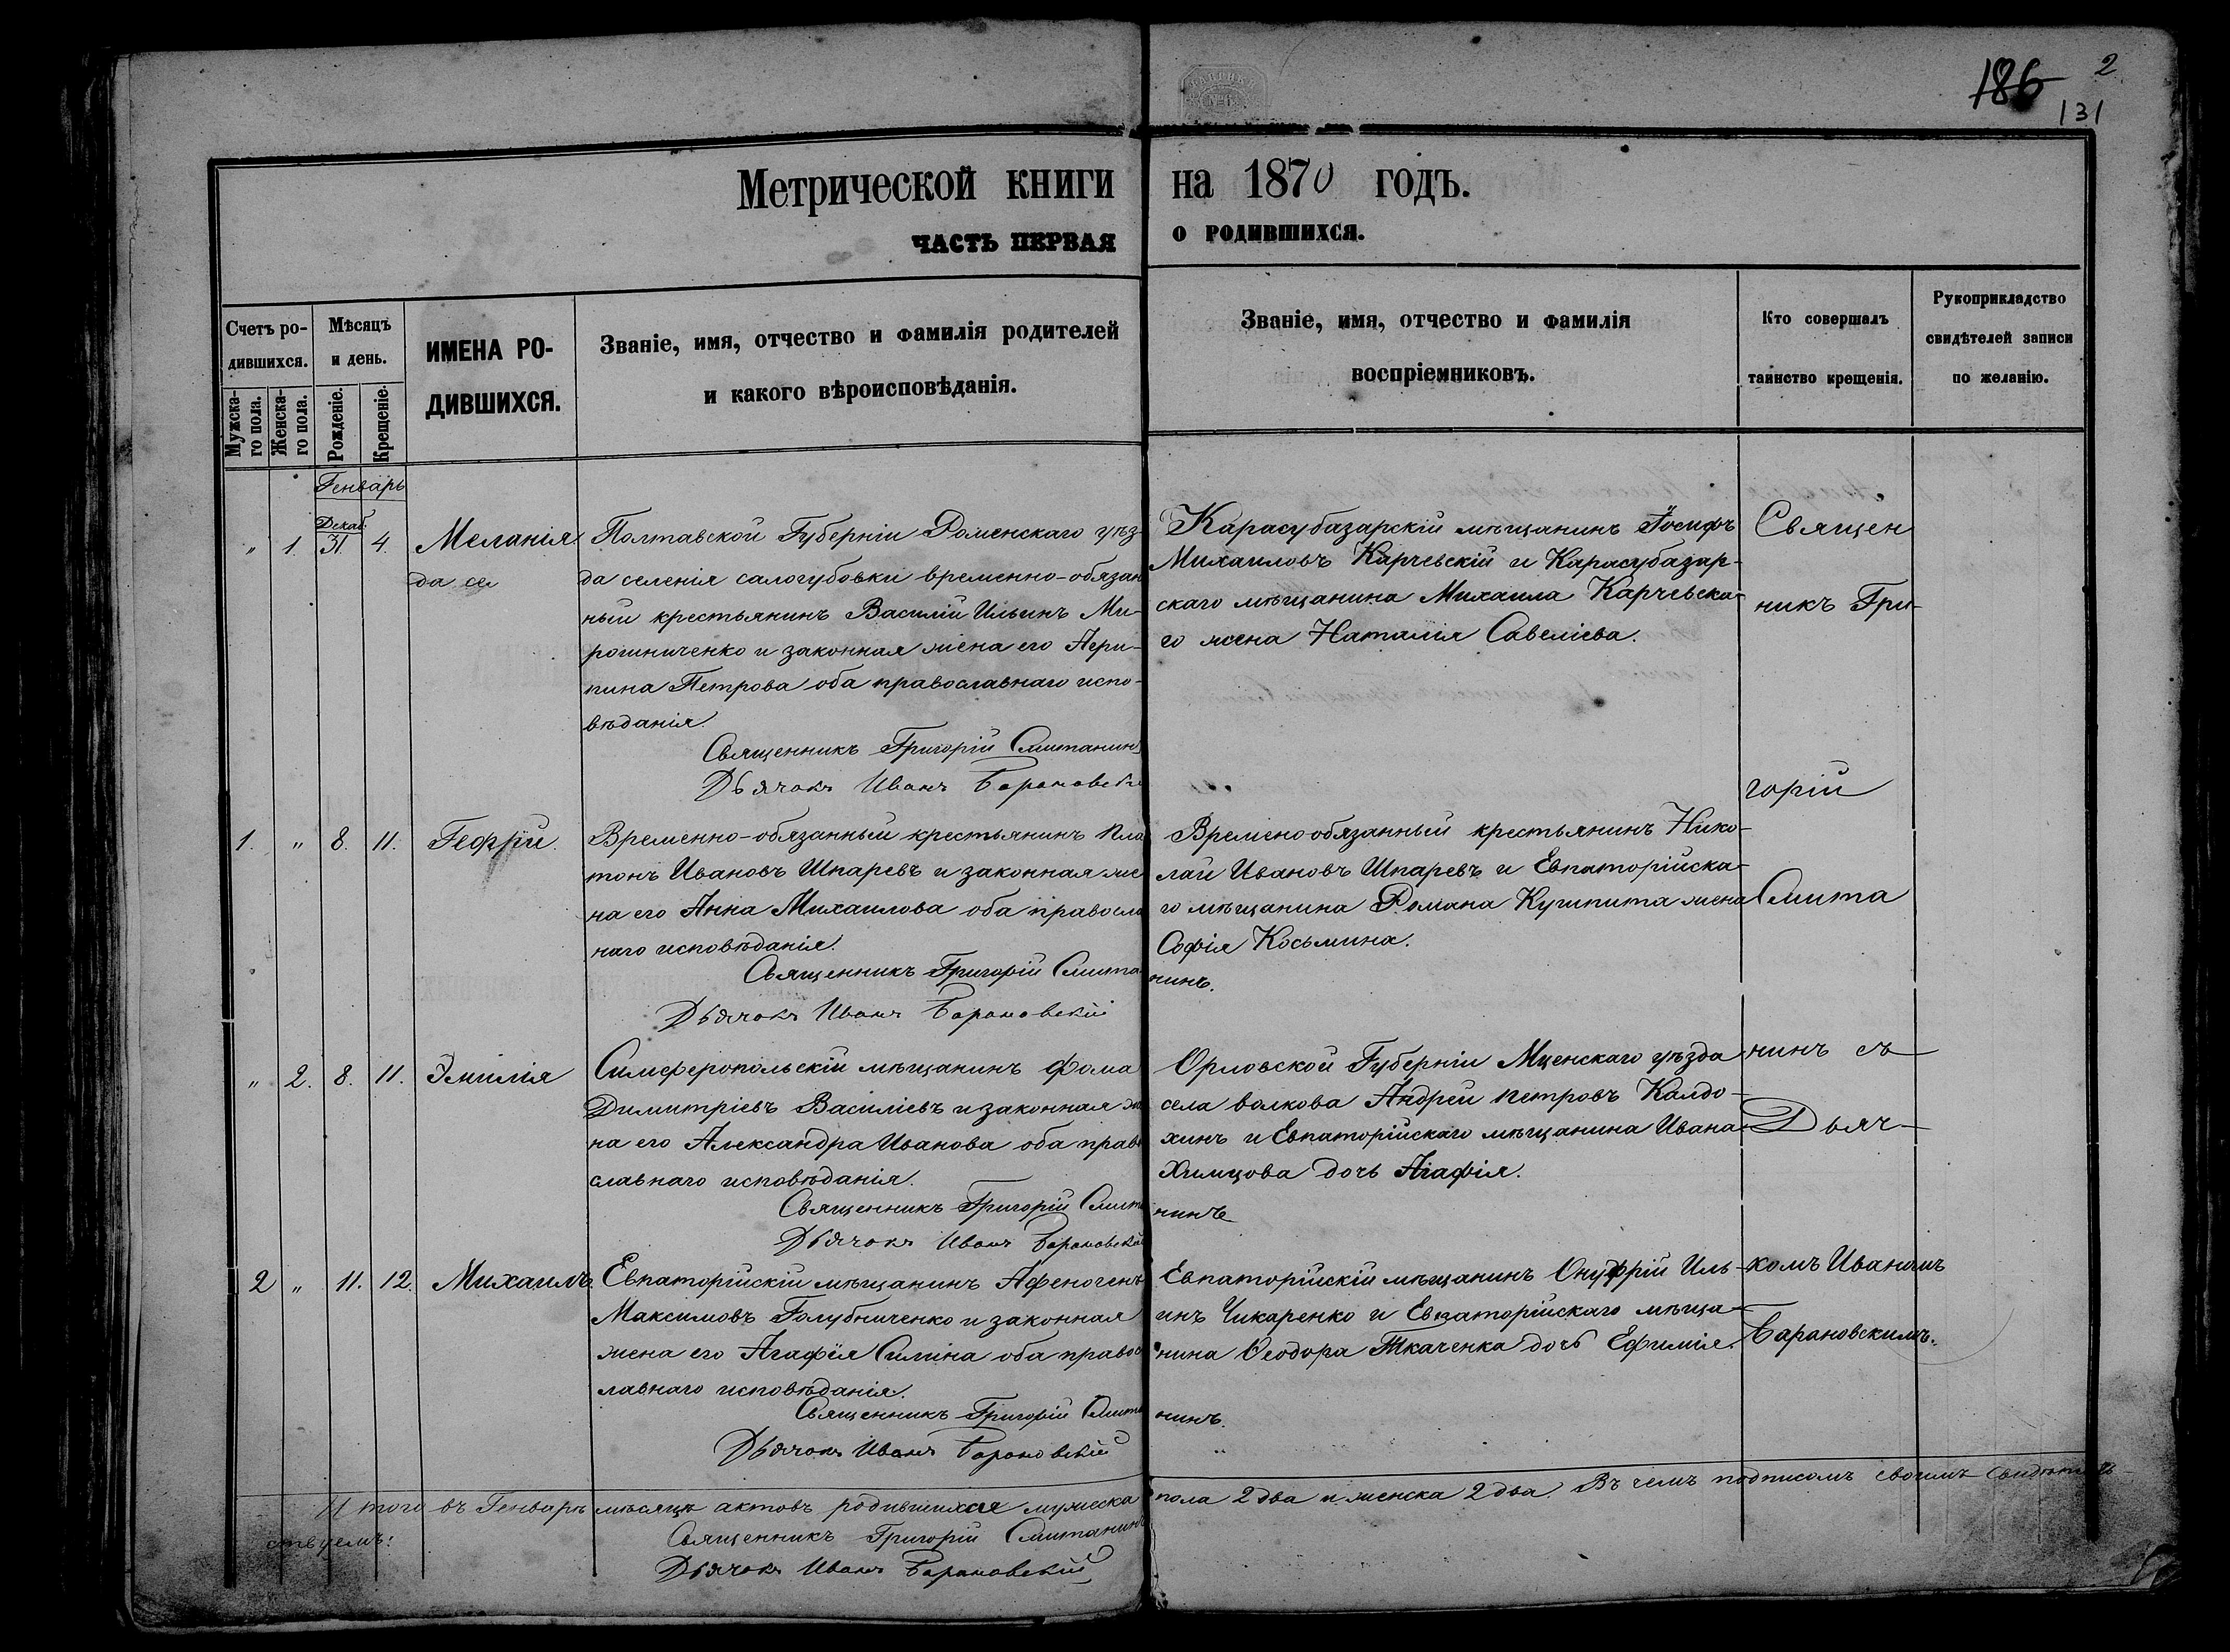 186 2
131
Метрической книги на 1870 годъ.
ЧАСТЬ ПЕРВАЯ О РОДИВШИХСЯ.
Счетъ ро-
дившихся.
Мужска-
го пола.
Женска-
го пола.
Мѣсяцъ
и день.
Рожденіе.
Крещеніе.
ИМЕНА РО-
ДИВШИХСЯ.
Званіе, имя, отчество и фамилія родителей
и какого вѣроисповѣданія.
Званіе, имя, отчество и фамилія
воспріемниковъ.
Кто совершалъ
таинство крещенія.
Рукоприкладство
свидѣтелей записи
по желанію.
Генварь
Декаб.
" 1. 31 4. Меланія
да се
Полтавской Губерніи Роменскаго уѣз-
да селенія салогубовки временно-обязан
ный крестьянинъ Василій Ильинъ Ми-
рошниченко и законная жена его Агри-
пина Петрова оба православнаго испо-
вѣданія.
Священникъ Григорій Смитанинъ
Дьячокъ Иванъ Барановскі
Карасубазарскій мѣщанинъ Іосифъ
Михаиловъ Карчевскій и Карасубазар-
скаго мѣщанина Михаила Карчевска-
го жена Наталія Савеліева.
Священ
никъ Гри-
горій
1. " 8. 11. Георгій.
Временно-обязанный крестьянинъ Пла
тонъ Ивановъ Шпаревъ и законная же
на его Анна Михаилова оба правосла
наго исповѣданія.
Священникъ Григорій Смита
нинъ.
Дьячокъ Иванъ Барановскій
Временообязанный крестьянинъ Нико-
лай Ивановъ Шпаревъ и Евпаторійска-
го мѣщанина Романа Кушпита жена
Софія Косьмина.
Смита
" 2. 8. 11. Эмилія
Симферопольскій мѣщанинъ Фома
Димитріевъ Василіевъ и законная же
на его Александра Иванова оба право
славнаго исповѣданія.
Священникъ Григорій Смита
нинъ
Дьячокъ Иванъ Барановскій
Орловской Губерніи Мценскаго уѣзда
села волкова Андрей петровъ Калдо-
хинъ и Евпаторійскаго мѣщанина Ивана
Химцова дочь Агафія.
нинъ съ
Дьяч-
2 " 11. 12. Михаилъ.
Евпаторійскій мѣщанинъ Афеногенъ
Максимовъ Голубниченко и законная
жена его Агафія Силина оба правос
лавнаго исповѣданія.
Священникъ Григорій Смита
нинъ.
Дьячокъ Иванъ Барановскій
Евпаторійскій мѣщанинъ Онуфрій Иль-
инъ Чикаренко и Евпаторійскаго мѣща-
нина Ѳеодора Ткаченка дочь Ефимія.
комъ Иваномъ
Барановскимъ.
Итого въ Генварѣ мѣсяцѣ актовъ родившихся мужеска пола 2 два и женска 2 два Въ чемъ подписомъ своимъ свидѣтель
ствуемъ:
Священникъ Григорій Смитанинъ
Дьячокъ Иванъ Барановскій